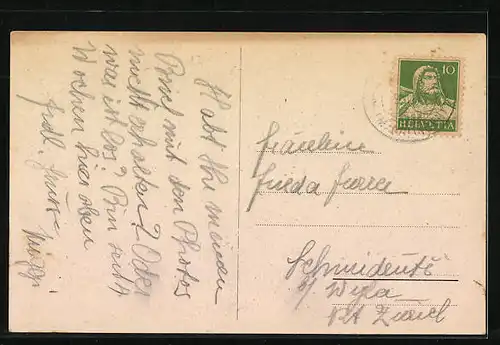 Habt Ihr meinen
Brief mit den Photos
nicht erhalten? Oder
was ist los? Bin seit
Wochen hier oben
frdl. Grüsse
10
HELVETIA
Fräulein
Frieda Furrer
Schmidrüti
b/ Wyla
Kt Zürich